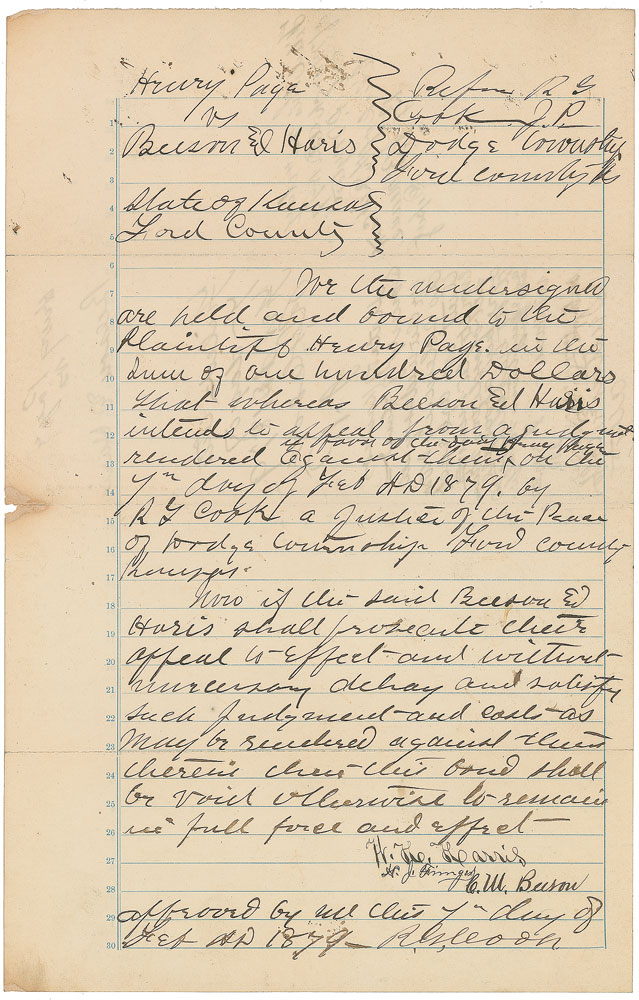 Henry Page
vs
Beeson Ed Haris
Before R G
Cook J.P.
Dodge Township
Ford County Ks
State of Kansas
Ford County
We the undersigned
are held and bound to the
Plaintiff Henry Page. in the
Sum of one hundred Dollars
that whereas Beeson Ed Haris
intends to appeal from a judgment
in favor of the said Henry Page
rendered Against them, on the
7th day of Feb AD 1879. by
R G Cook a Justice of the Peace
of Dodge Township Ford county
Kansas.
Now if the said Beeson Ed
Haris shall prosecute their
appeal to Effect and without
unnecessary delay and satisfy
such judgment and costs as
may be rendered against them
therein then this bond shall
be void otherwise to remain
in full force and effect
W. H. Harris
C. M. Beeson
approved by me this 7th day of
Feb AD 1879 R. G. Cook
1
2
3
4
5
6
7
8
9
10
11
12
13
14
15
16
17
18
19
20
21
22
23
24
25
26
27
28
29
30